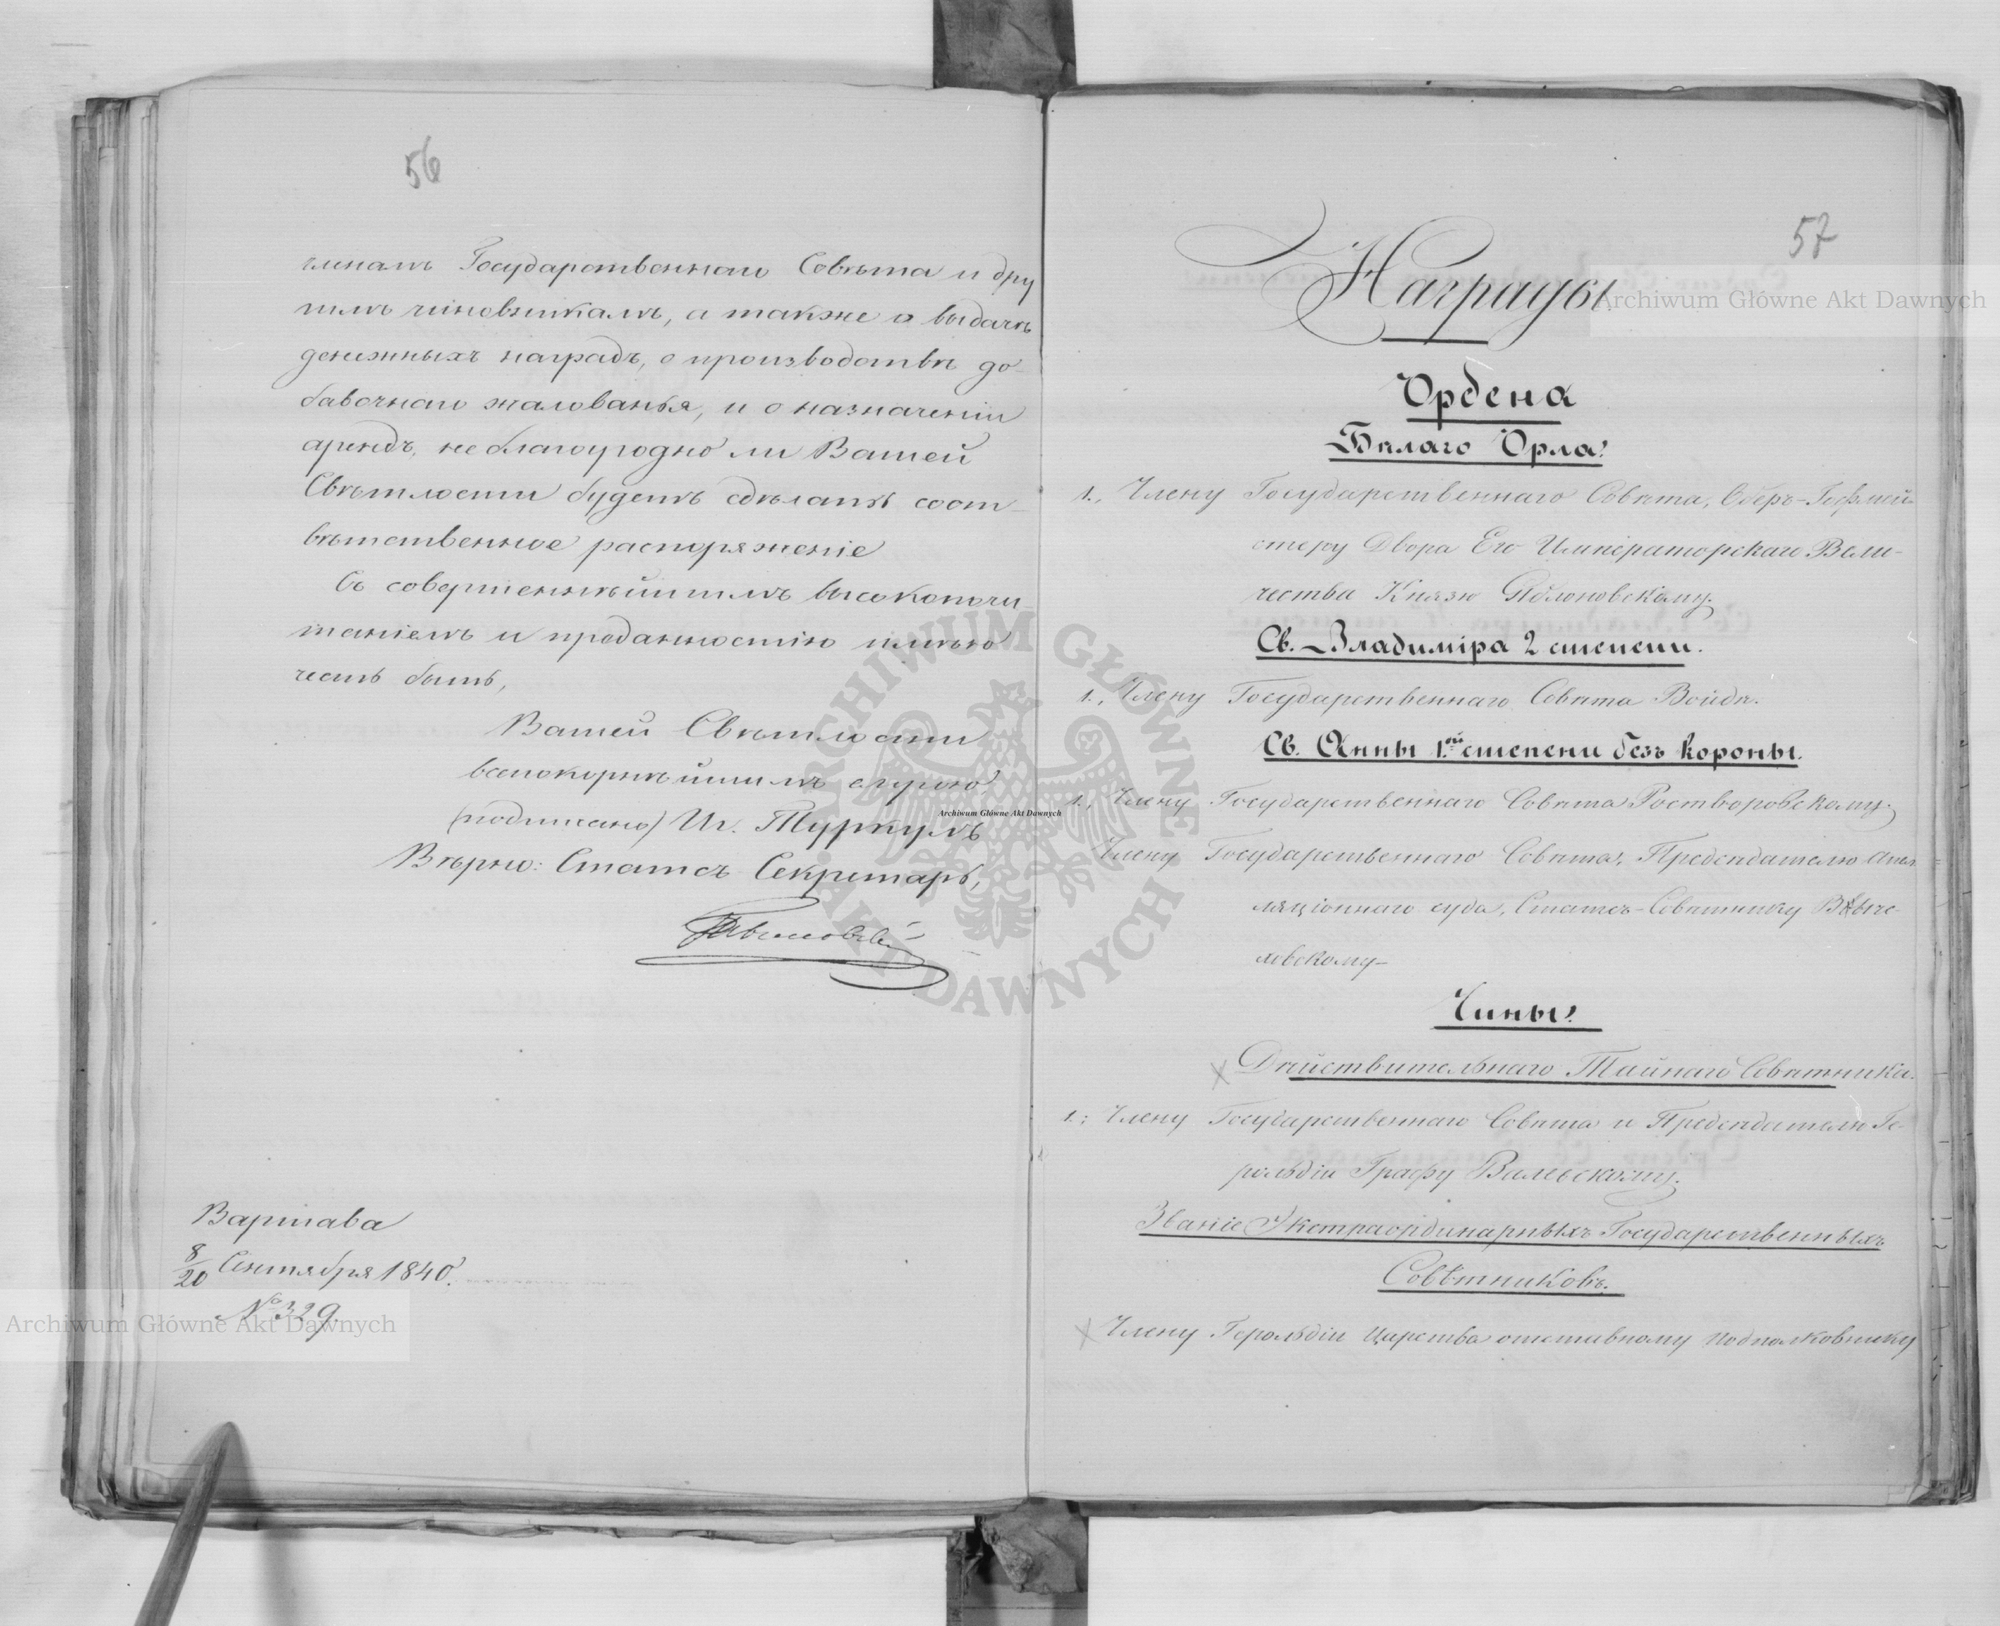 56
членамъ Государственнаго Совѣта и дру
гимъ чиновникамъ, а также о выдачѣ
денежныхъ наградъ, о производствѣ до-
бавочнаго жалованья, и о назначеніи
арендъ, не благоугодно ли Вашей
Свѣтлости будетъ сдѣлать соот-
вѣтственное распоряженіе
Съ совершеннѣйшимъ высокопочи
таніемъ и преданностію имѣю
честь быть,
Вашей Свѣтлости
всепокорнѣйшимъ слугою
(подписано) Иг. Туркулъ
Вѣрно: Статсъ Секретарь,
Варшава
8/20 Сентября 1840.
№ 329.
57
Награды
Ордена
Бѣлаго Орла:
1., Члену Государственнаго Совѣта, Оберъ-Гофмей-
стеру Двора Его Императорскаго Вели-
чества Князю Яблоновскому.
Св. Владиміра 2 степени.
1., Члену Государственнаго Совѣта Войдѣ.
Св. Анны 1.ой степени безъ короны.
1., Члену Государственнаго Совѣта Ростворовскому.
Члену Государственнаго Совѣта, Предсѣдателю Апел
ляціоннаго суда, Статсъ-Совѣтнику Выче-
ховскому
Чины:
Дѣйствительнаго Тайнаго Совѣтника.
1., Члену Государственнаго Совѣта и Предсѣдателю Ге-
рольдіи Графу Валевскому.
Званіе Экстраординарныхъ Государственныхъ
Совѣтниковъ.
Члену Герольдіи Царства отставному Подполковнику
Archiwum Główne Akt Dawnych
Archiwum Główne Akt Dawnych
Archiwum Główne Akt Dawnych
ARCHIWUM GŁÓWNE AKT DAWNYCH